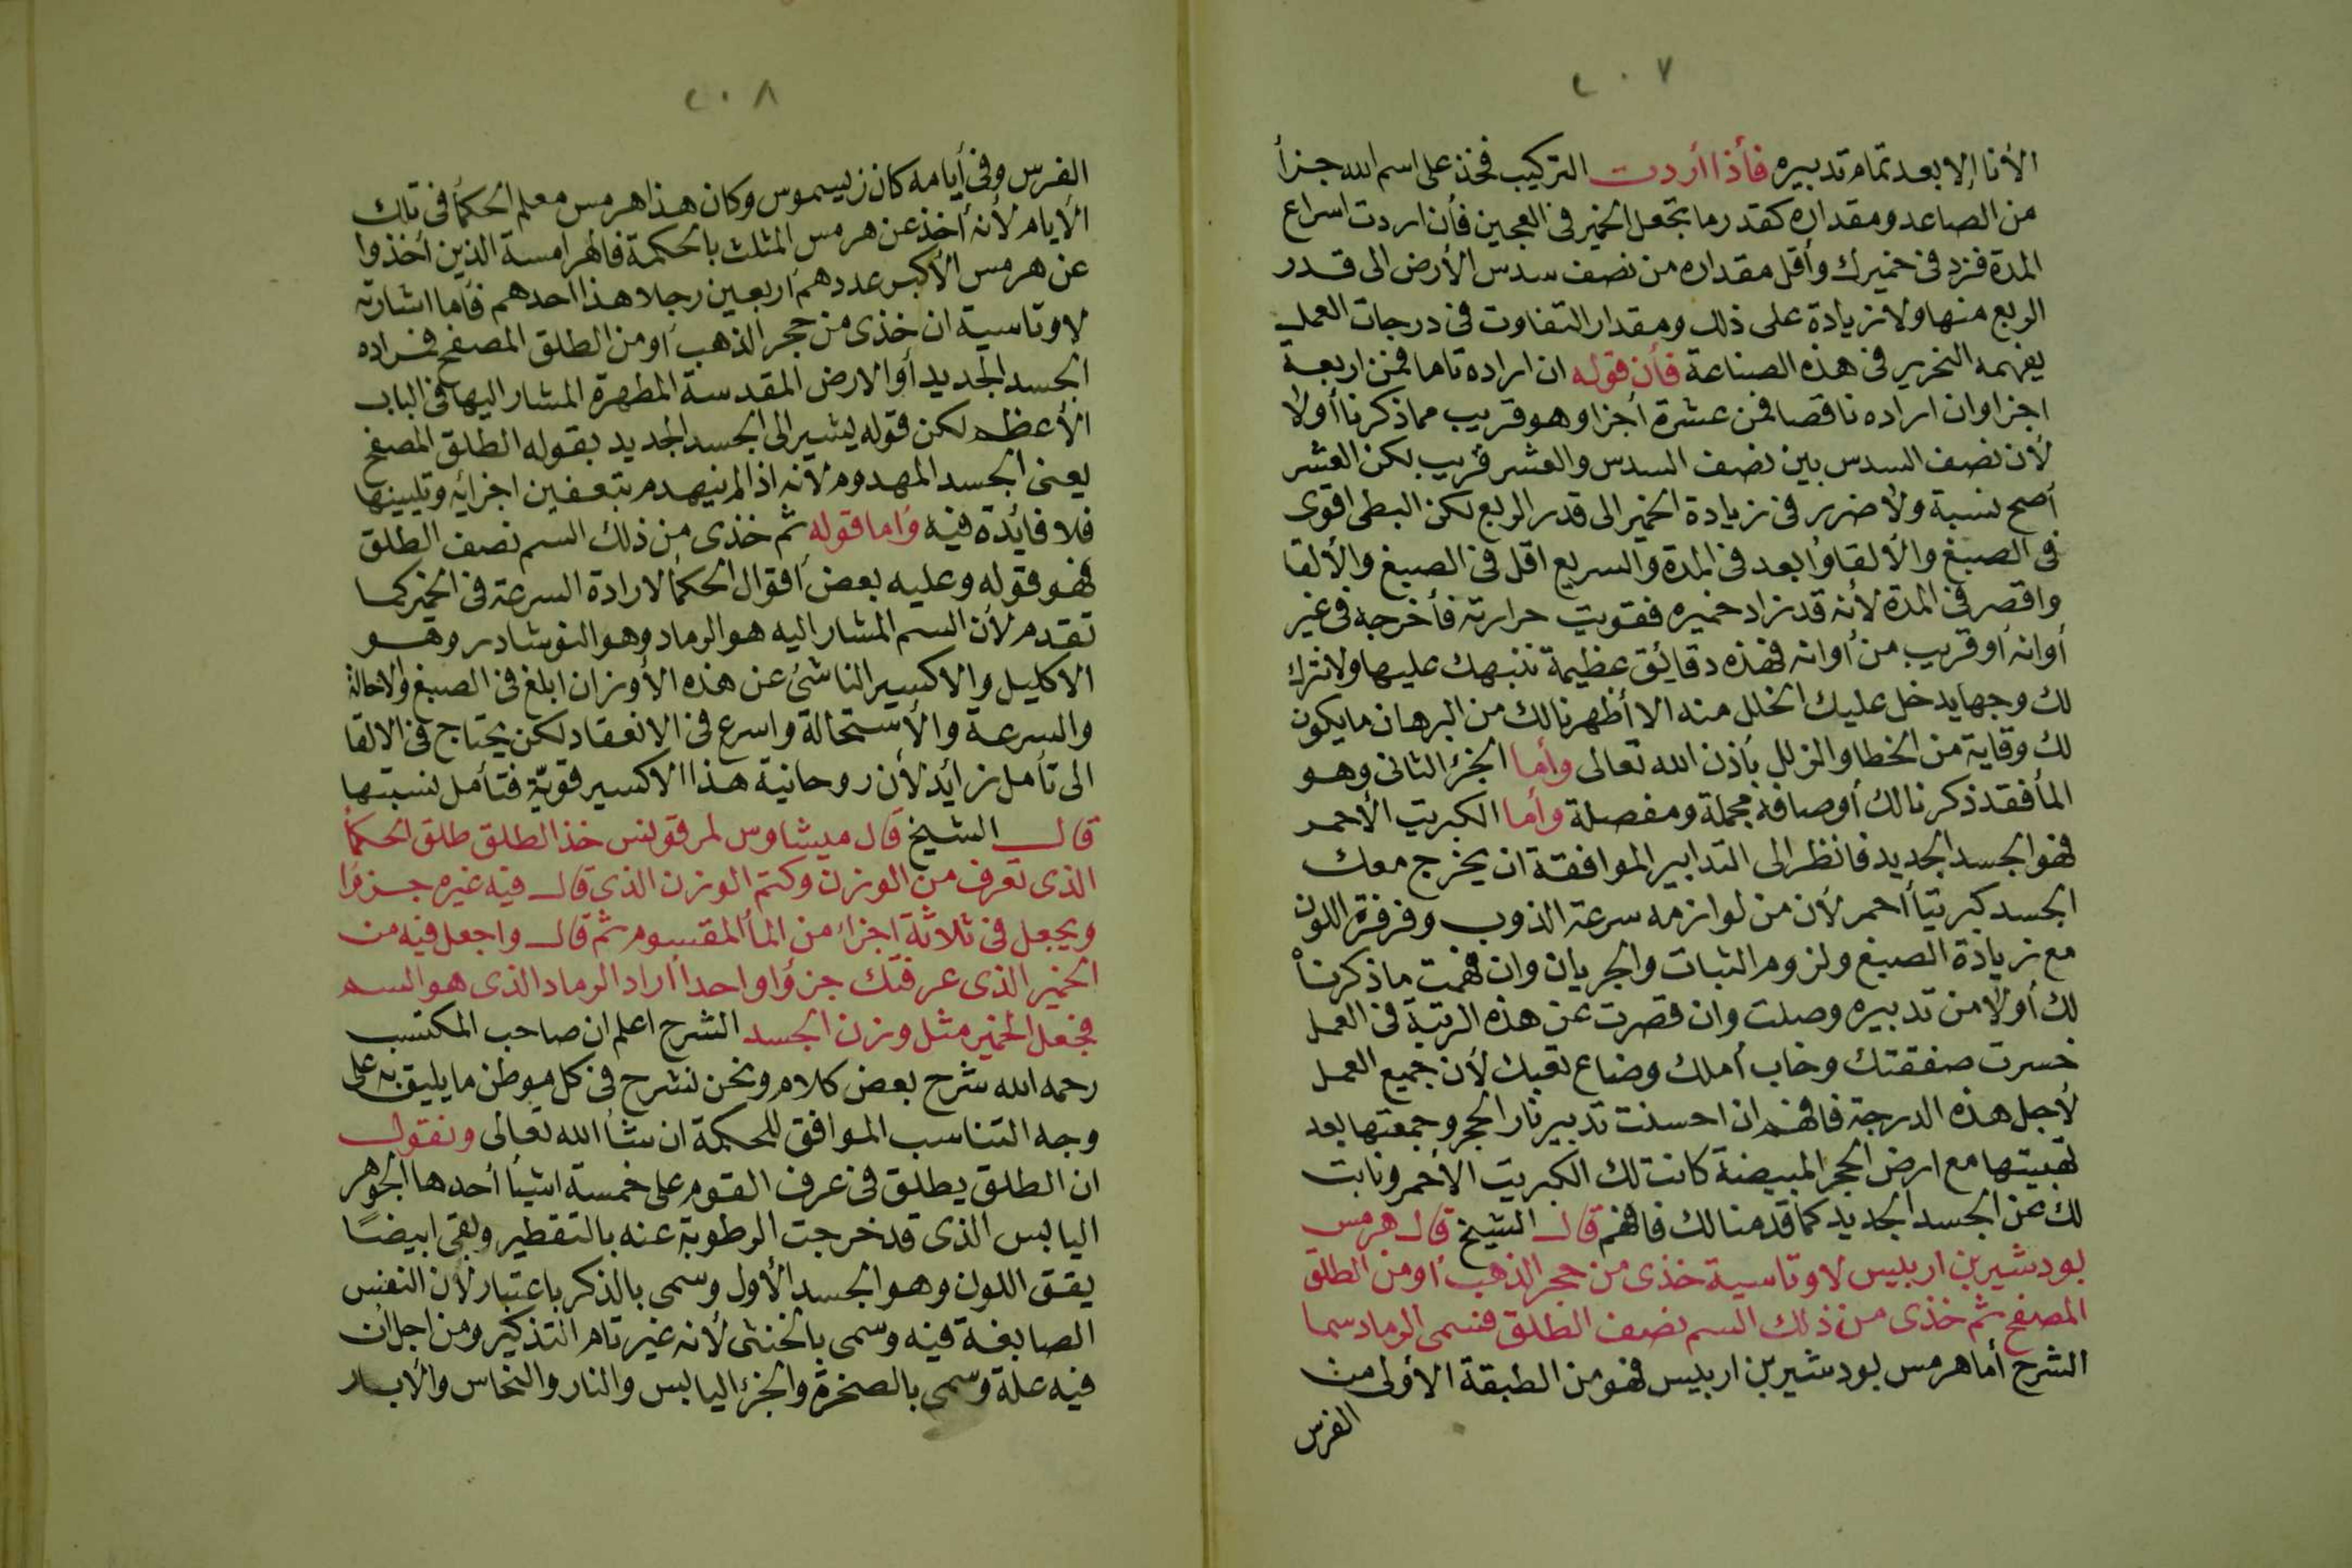 ٢٠٧
الأنا إلا بعد تمام تدبيره فأذا أردت التركيب فخذ على اسم الله جزأ
من الصاعد ومقداره كقدر ما تجعل الخمير في العجين فأن اردت اسراع
المدة فزد في خميرك وأقل مقداره من نصف سدس الأرض الى قدر
الربع منها ولا زيادة على ذلك ومقدار التفاوت في درجات العمل
يفهمه النحرير في هذه الصناعة فأن قوله ان اراده تاما فمن اربعة
اجزا وان اراده ناقصا فمن عشرة أجزا وهو قريب مما ذكرنا أولا
لأن نصف السدس بين نصف السدس والعشر قريب لكن العشر
أصح نسبة ولا ضرر في زيادة الخمير الى قدر الربع لكن البطى اقوى
فى الصبغ والألقا وأبعد في المدة والسريع اقل في الصبغ والألقا
واقصر في المدة لأنه قد زاد خميره فقويت حرارته فأخرجه في غير
أوانه أو قريب من أوانه فهذه دقائق عظيمة ننبهك عليها ولا نترك
لك وجها يدخل عليك الخلل منه الا أظهرنا لك من البرهان ما يكون
لك وقاية من الخطا والزلل بأذن الله تعالى وأما الجزء الثانى وهو
المأ فقد ذكرنا لك أوصافه مجملة ومفصلة وأما الكبريت الأحمر
فهو الجسد الجديد فانظر الى التدابير الموافقة ان يخرج معك
الجسد كبريتاً أحمر لأن من لوازمه سرعة الذوب وفرفرة اللون
مع زيادة الصبغ ولزوم الثبات والجريان وان فهمت ما ذكرناه
لك أولا من تدبيره وصلت وان قصرت عن هذه الرتبة في العمل
خسرت صفقتك وخاب أملك وضاع تعبك لأن جميع العمل
لأجل هذه الدرجة فافهم ان احسنت تدبير نار الحجر وجمعتها بعد
تهبيتها مع ارض الحجر المبيضة كانت لك الكبريت الأحمر ونابت
لك عن الجسد الجديد كما قدمنا لك فافهم قال الشيخ قال هرمس
بودشير بن اربليس لاوتاسية خذى من حجر الذهب أو من الطلق
المصفح ثم خذى من ذلك السم نصف الطلق فسمى الرماد سما
الشرح أما هرمس بودشير بن اربليس فهو من الطبقة الأولى من
الفرس
٢٠٨
الفرس وفي أيامه كان زيسموس وكان هذا هرمس معلم الحكمأ في تلك
الأيام لأنه أخذ عن هرمس المثلث بالحكمة فالهرامسة الذين أخذوا
عن هرمس الأكبر عددهم أربعين رجلا هذا أحدهم فأما اشارته
لاوتاسية ان خذى من حجر الذهب أو من الطلق المصفح فمراده
الجسد الجديد أو الارض المقدسة المطهرة المشار اليها في الباب
الأعظم لكن قوله يشير الى الجسد الجديد بقوله الطلق المصفح
يعنى الجسد المهدوم لأنه اذا لم ينهدم بتعفين اجزائه وتليينها
فلا فايدة فيه وأما قوله ثم خذى من ذلك السم نصف الطلق
فهو قوله وعليه بعض أقوال الحكمأ لارادة السرعة في الخمير كما
تقدم لأن السم المشار اليه هو الرماد وهو النوشادر وهو
الاكليل والاكسير الناشئ عن هذه الأوزان ابلغ في الصبغ والاحالة
والسرعة والأستحالة واسرع في الانعقاد لكن يحتاج في الالقا
الى تأمل زائد لأن روحانية هذا الاكسير قويّة فتأمل نسبتها
قال الشيخ قال ميشاوس لمرقولنس خذ الطلق طلق الحكمأ
الذى تعرف من الوزن وكتم الوزن الذى قال فيه غيره جزؤا
ويجعل في ثلاثة اجزاء من المأ المقسوم ثم قال واجعل فيه من
الخمير الذى عرفتك جزؤا واحداً أراد الرماد الذى هو السم
فجعل الخمير مثل وزن الجسد الشرح اعلم ان صاحب المكتسب
رحمه الله شرح بعض كلام ونحن نشرح في كل موطن ما يليق به على
وجه التناسب الموافق للحكمة ان شأ الله تعالى ونقول
ان الطلق يطلق في عرف القوم على خمسة اشيأ أحدها الجوهر
اليابس الذى قد خرجت الرطوبة عنه بالتقطير وبقى ابيضًا
يقق اللون وهو الجسد الأول وسمى بالذكر باعتبار لأن النفس
الصابغة فيه وسمى بالخنثى لأنه غير تام التذكير ومن اجل أن
فيه علة وسمى بالصخرة والجزء اليابس والنار والنحاس والأبار